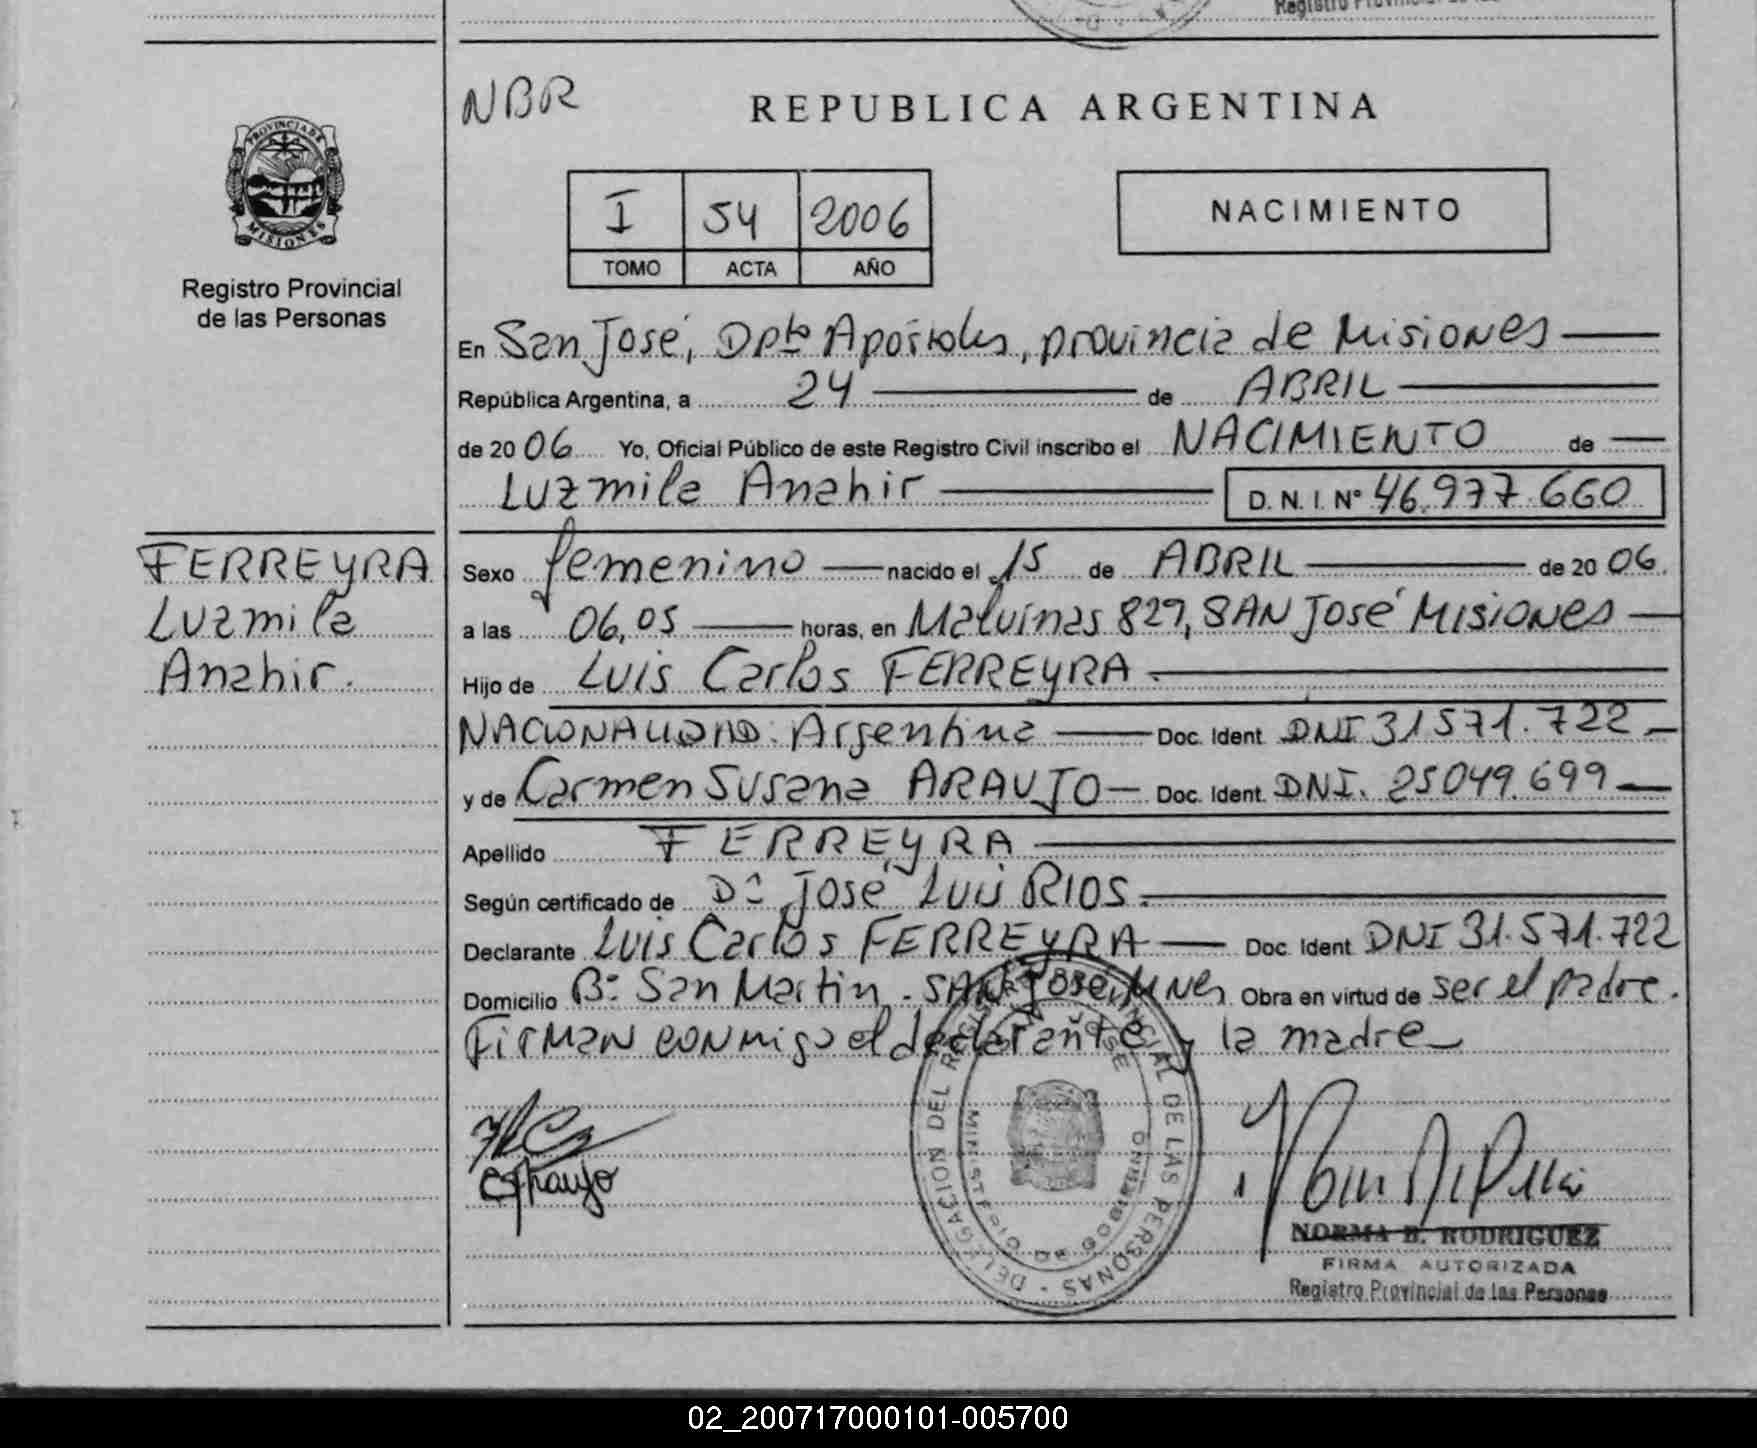 Registro Provincial de las
NBR
REPUBLICA ARGENTINA
PROVINCIA DE
MISIONES
Registro Provincial
de las Personas
I 54 2006
TOMO ACTA AÑO
NACIMIENTO
En San José, Dpto Apóstoles, provincia de Misiones
República Argentina, a 24 de ABRIL
de 20 06 Yo, Oficial Público de este Registro Civil inscribo el NACIMIENTO de
Luzmila Anahir D.N.I. Nº 46.977.660
FERREYRA
Luzmila
Anahir.
Sexo femenino nacido el 15 de ABRIL de 20 06.
a las 06,05 horas, en Malvinas 827, SAN José Misiones
Hijo de Luis Carlos FERREYRA
NACIONALIDAD: Argentina Doc. Ident. DNI 31571.722
y de Carmen Susana ARAUJO Doc. Ident. DNI. 25049.699
Apellido FERREYRA
Según certificado de Dr José Luis RIOS.
Declarante Luis Carlos FERREYRA Doc. Ident. DNI 31.571.722
Domicilio Bº San Martin - SAN José, Mnes Obra en virtud de ser el padre.
Firman conmigo el declarante y la madre
CAraujo
DELEGACION DEL REGISTRO PROVINCIAL DE LAS PERSONAS
SAN JOSE
MINISTERIO DE GOBIERNO
NORMA B. RODRIGUEZ
FIRMA AUTORIZADA
Registro Provincial de las Personas
02_200717000101-005700